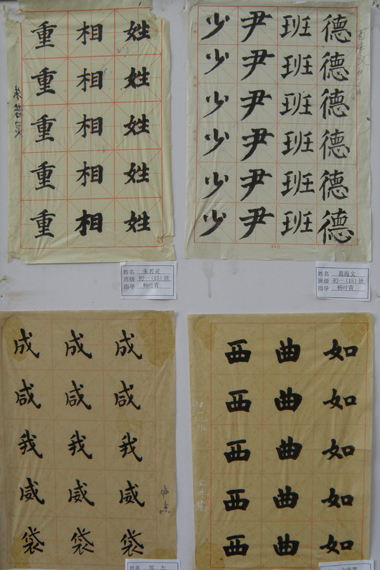 重 相 姓
重 相 姓
重 相 姓
重 相 姓
重 相 姓
少 尹 班 德
少 尹 班 德
少 尹 班 德
少 尹 班 德
少 尹 班 德
少 尹 班 德
姓名
班级 初一(15)班
指导 杨叶青
姓名
班级 初一(15)班
指导 杨叶青
成 成 成
咸 咸 咸
我 我 我
威 威 威
袋 袋 袋
西 曲 如
西 曲 如
西 曲 如
西 曲 如
西 曲 如